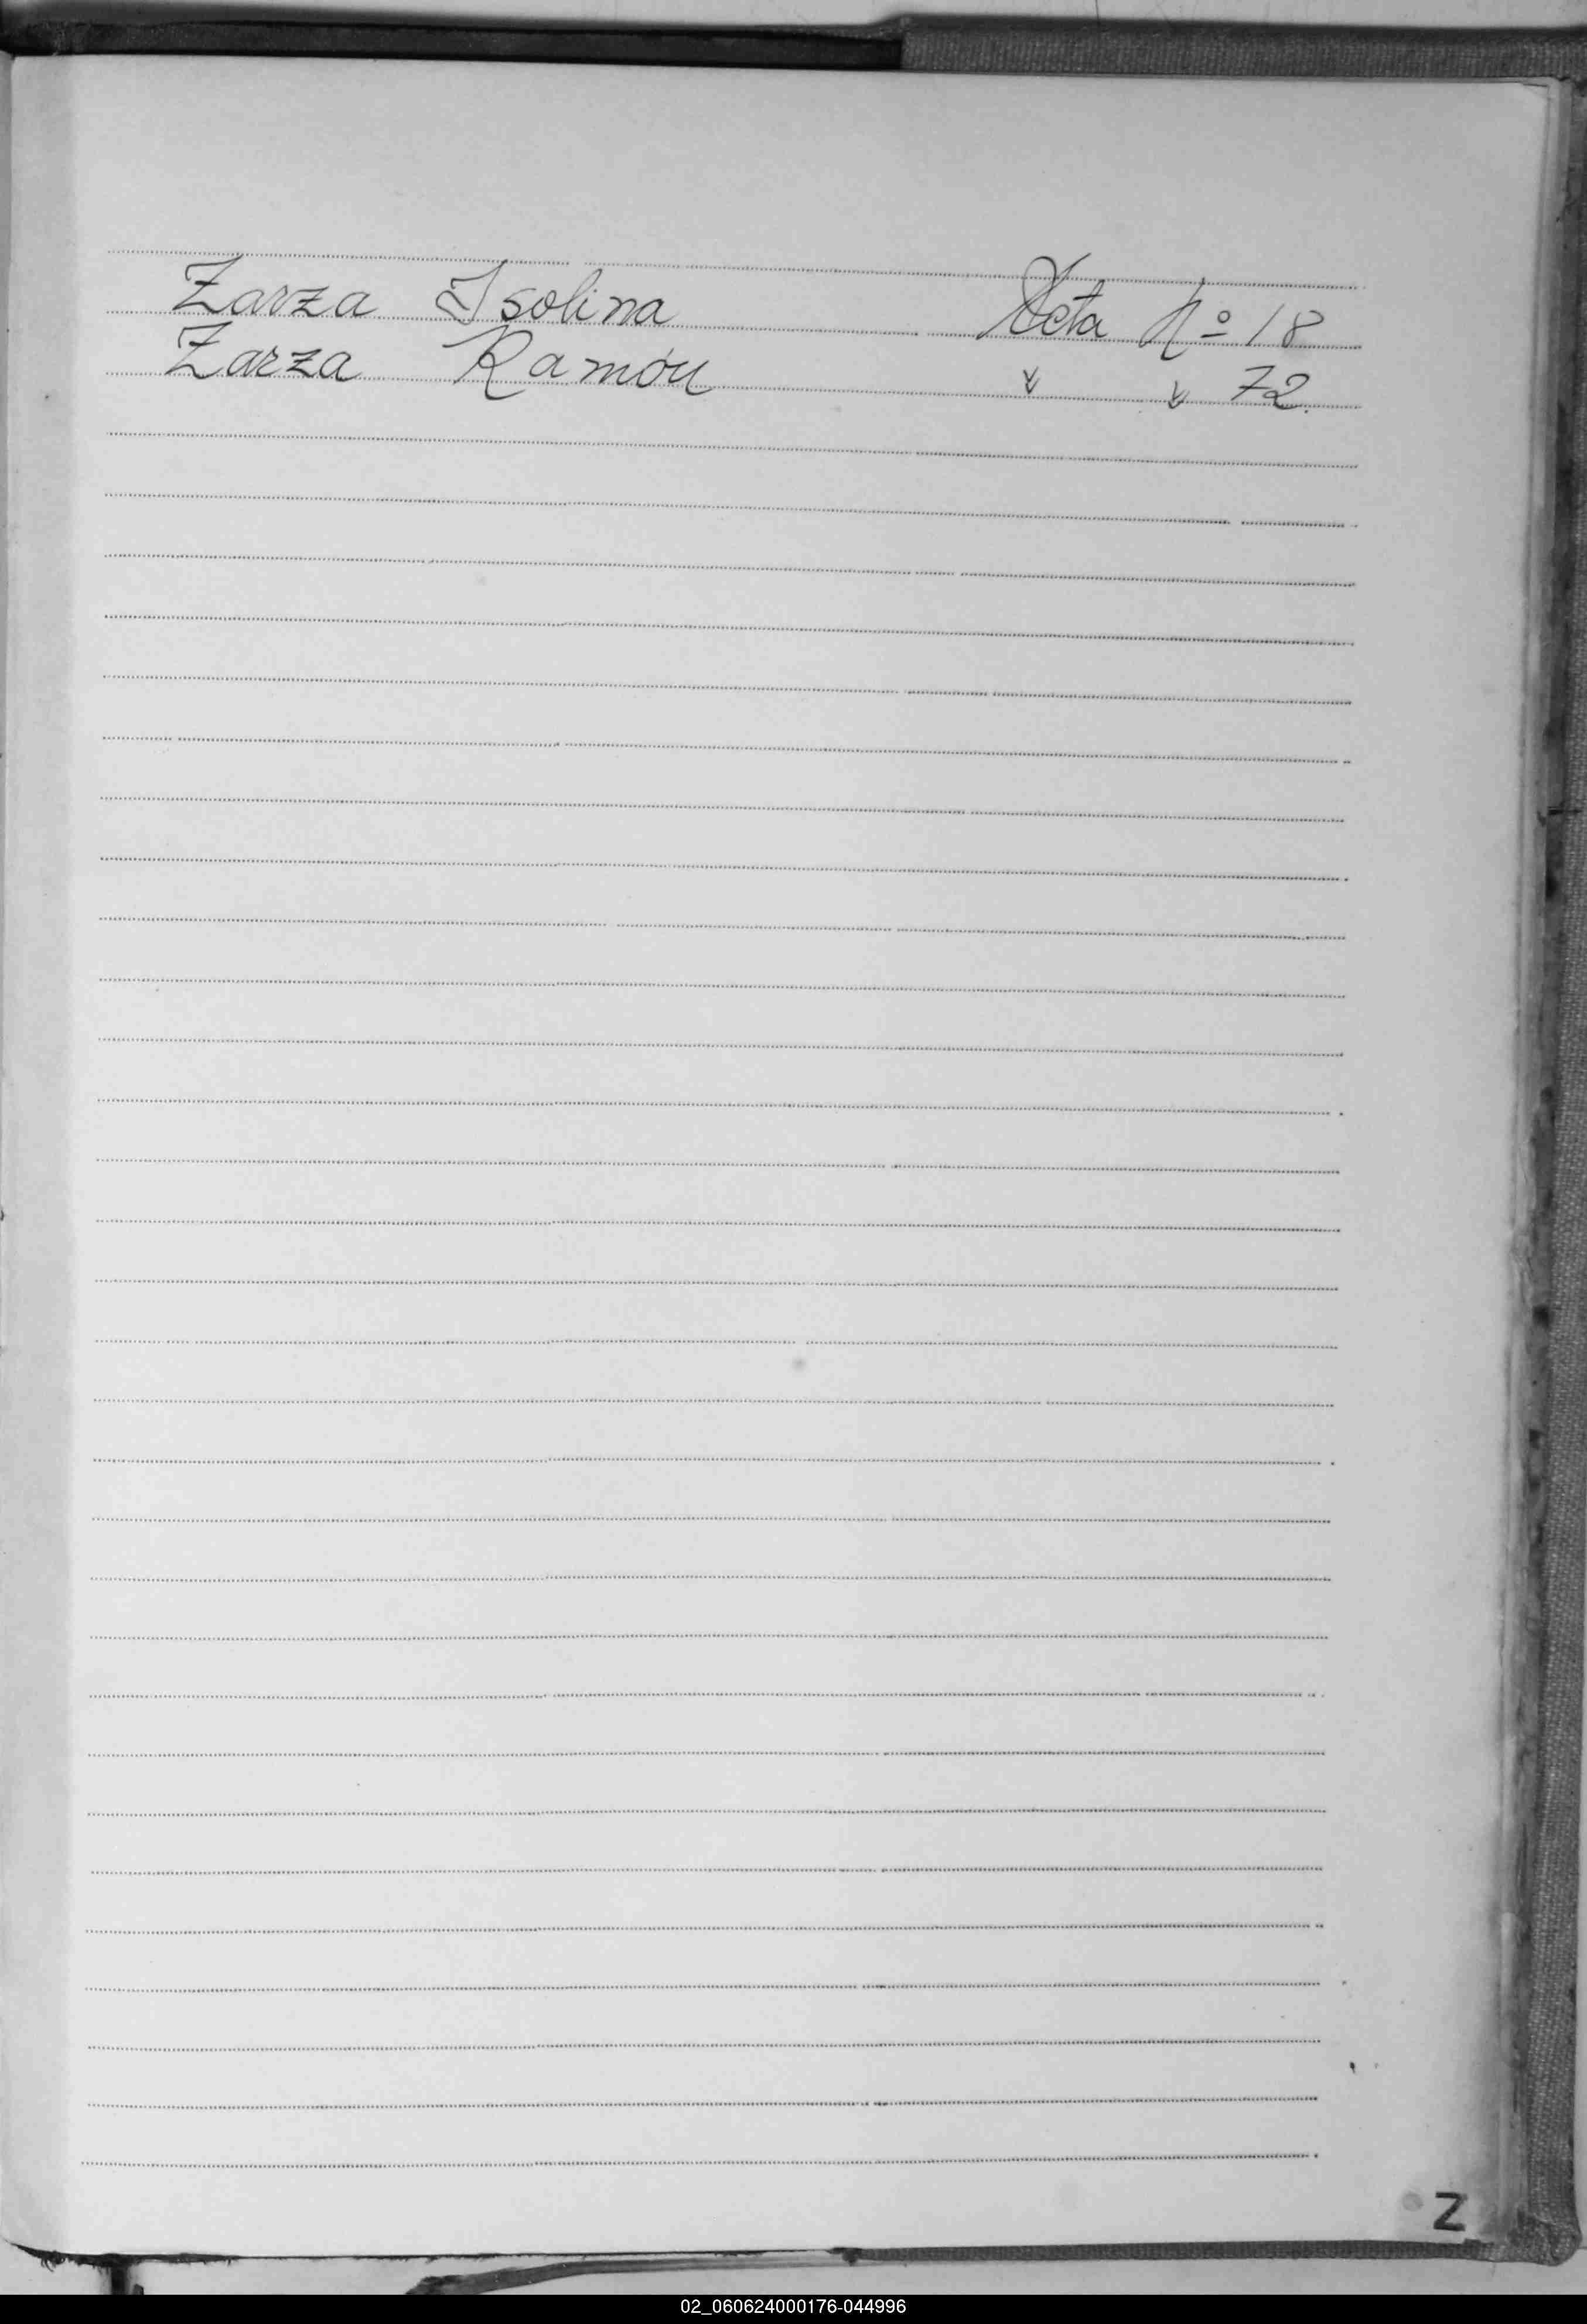 Zarza Isolina Acta Nº 18
Zarza Ramón " " 72.
Z
02_060624000176-044996